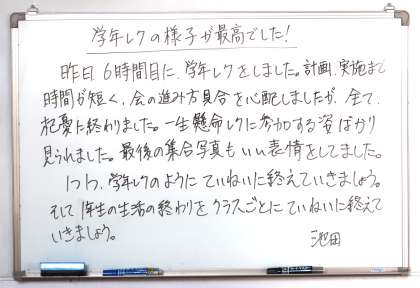 学年レクの様子が最高でした!
昨日、6時間目に、学年レクをしました。計画、実施まで
時間が短く、会の進み方具合を心配しましたが、全て、
杞憂に終わりました。一生懸命レクに参加する姿ばかり
見られました。最後の集合写真もいい表情をしてました。
1つ1つ、学年レクのように ていねいに終えていきましょう。
そして1年生の生活の終わりをクラスごとにていねいに終えて
いきましょう。
池田